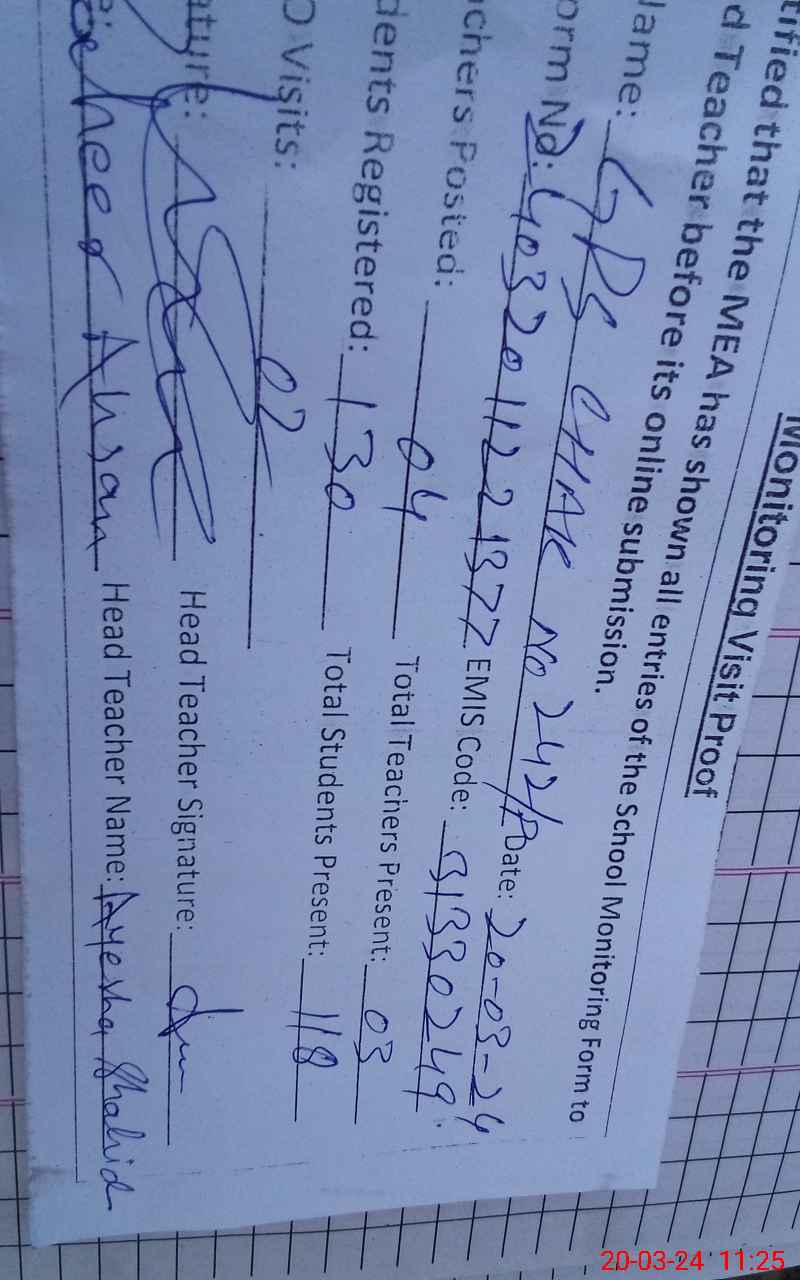 Monitoring Visit Proof
tified that the MEA has shown all entries of the School Monitoring Form to
d Teacher before its online submission.
lame: GPS CHAK No 242/P Date: 20-03-24
orm No: 403201122 1377 EMIS Code: 31330249
chers Posted: 04 Total Teachers Present: 03
dents Registered: 130 Total Students Present: 118
O Visits: 02
ature: Head Teacher Signature:
Ahsan Head Teacher Name: Ayesha Shahid
20-03-24 11:25